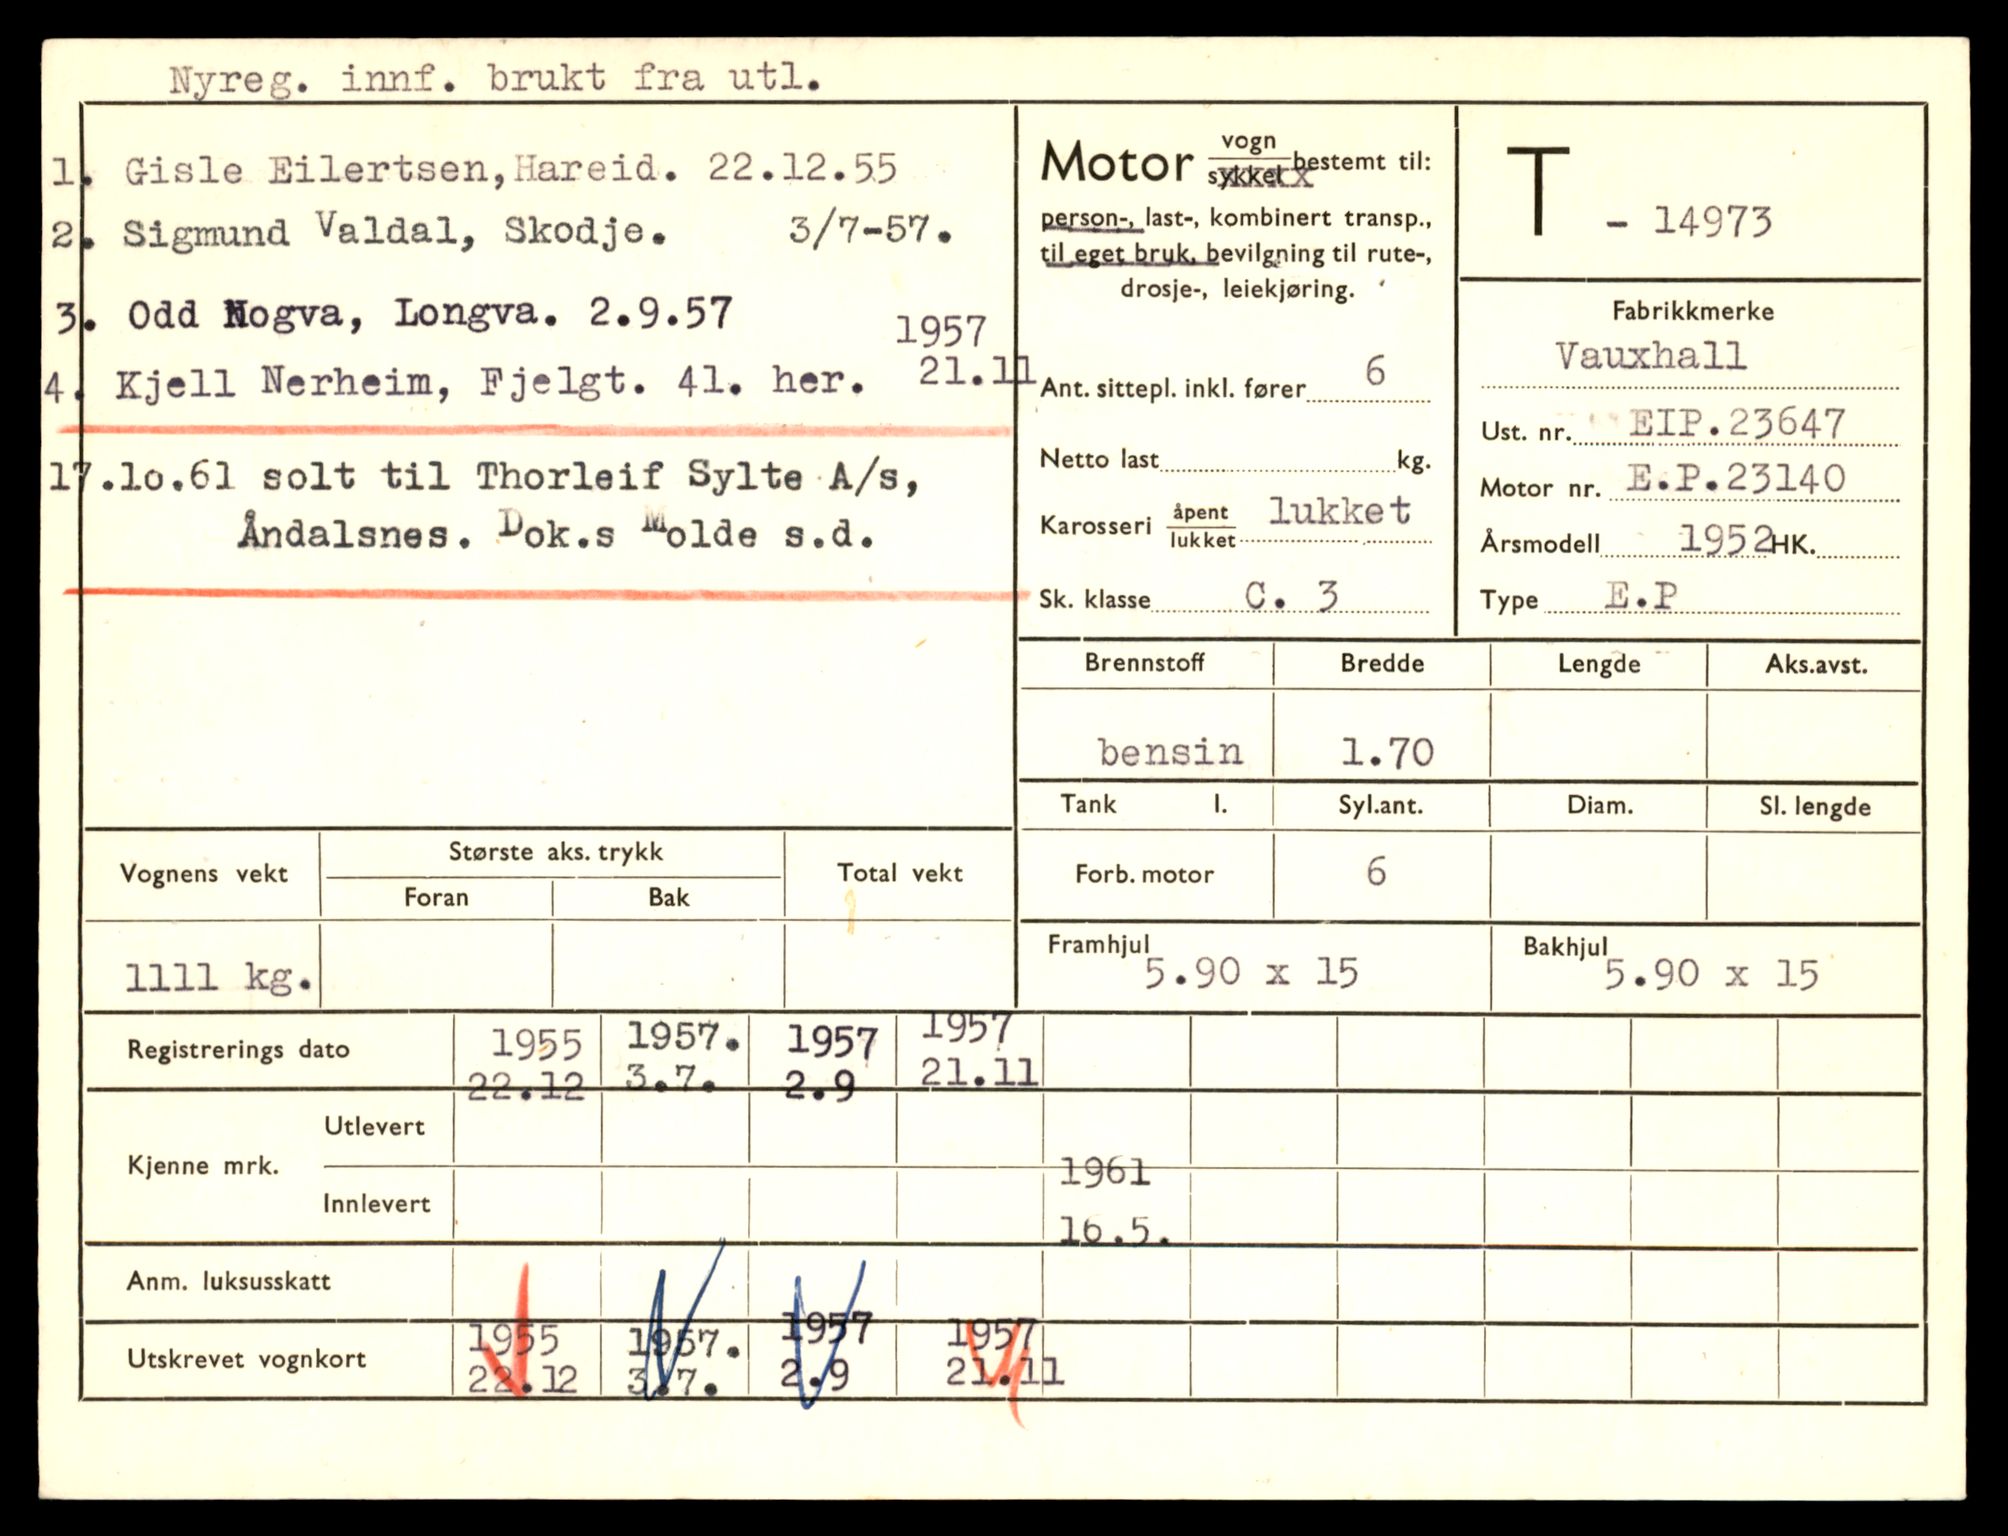 Nyreg. innf. brukt fra utl.
1. Gisle Eilertsen,Hareid. 22.12.55
2. Sigmund Valdal, Skodje. 3/7-57.
3. Odd Nogva, Longva. 2.9.57
1957
4. Kjell Nerheim, Fjelgt. 41. her. 21.11
17.10.61 solt til Thorleif Sylte A/s,
Åndalsnes. Dok.s Molde s.d.
Motor vogn sykkel bestemt til:
person-, last-, kombinert transp.,
til eget bruk, bevilgning til rute-,
drosje-, leiekjøring.
Ant. sittepl. inkl. fører 6
Netto last kg.
Karosseri åpent lukket lukket
Sk. klasse C. 3
T - 14973
Fabrikkmerke
Vauxhall
Ust. nr. EIP.23647
Motor nr. E.P.23140
Årsmodell 1952 HK.
Type E.P
Brennstoff Bredde Lengde Aks.avst.
bensin 1.70
Tank l. Syl.ant. Diam. Sl. lengde
Forb. motor 6
Framhjul 5.90 x 15 Bakhjul 5.90 x 15
Vognens vekt Største aks. trykk Total vekt
Foran Bak
1111 kg.
Registrerings dato 1955 1957. 1957 1957
22.12 3.7. 2.9 21.11
Utlevert
Kjenne mrk. 1961
Innlevert 16.5.
Anm. luksusskatt
Utskrevet vognkort 1955 1957. 1957 1957
22.12 3.7. 2.9 21.11